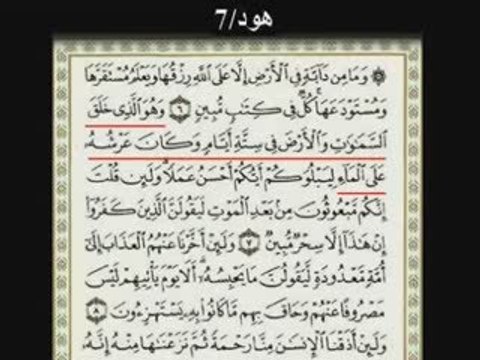 هود/7
۞ وَمَا مِن دَآبَّةٍ فِى ٱلْأَرْضِ إِلَّا عَلَى ٱللَّهِ رِزْقُهَا وَيَعْلَمُ مُسْتَقَرَّهَا
وَمُسْتَوْدَعَهَا كُلٌّ فِى كِتَٰبٍ مُّبِينٍ ٦ وَهُوَ ٱلَّذِى خَلَقَ
ٱلسَّمَٰوَٰتِ وَٱلْأَرْضَ فِى سِتَّةِ أَيَّامٍ وَكَانَ عَرْشُهُۥ
عَلَى ٱلْمَآءِ لِيَبْلُوَكُمْ أَيُّكُمْ أَحْسَنُ عَمَلًا وَلَئِن قُلْتَ
إِنَّكُم مَّبْعُوثُونَ مِنۢ بَعْدِ ٱلْمَوْتِ لَيَقُولَنَّ ٱلَّذِينَ كَفَرُوٓا۟
إِنْ هَٰذَآ إِلَّا سِحْرٌ مُّبِينٌ ٧ وَلَئِنْ أَخَّرْنَا عَنْهُمُ ٱلْعَذَابَ إِلَىٰٓ
أُمَّةٍ مَّعْدُودَةٍ لَّيَقُولُنَّ مَا يَحْبِسُهُۥٓ أَلَا يَوْمَ يَأْتِيهِمْ لَيْسَ
مَصْرُوفًا عَنْهُمْ وَحَاقَ بِهِم مَّا كَانُوا۟ بِهِۦ يَسْتَهْزِءُونَ ٨
وَلَئِنْ أَذَقْنَا ٱلْإِنسَٰنَ مِنَّا رَحْمَةً ثُمَّ نَزَعْنَٰهَا مِنْهُ إِنَّهُۥ